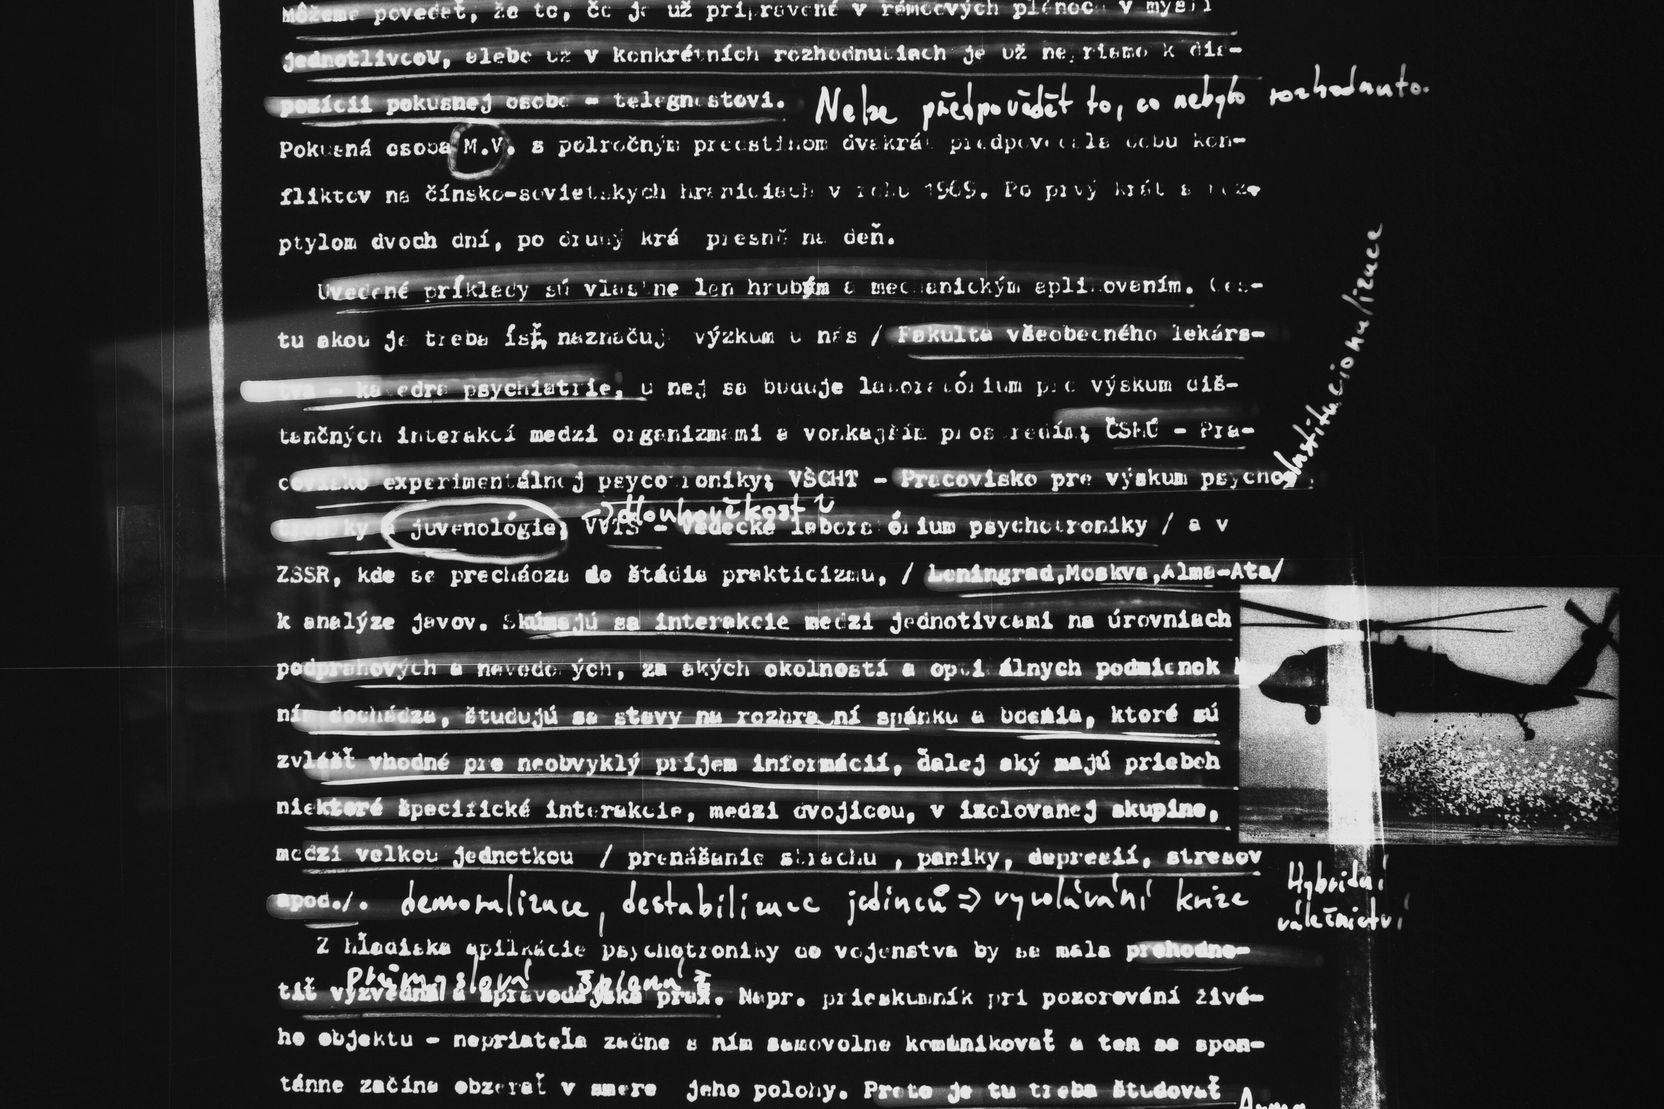 Môžeme povedať, že to, čo je už pripravené v rámcových plánoch v mysli
jednotlivcov, alebo už v konkrétních rozhodnutiach je už nepriamo k dis-
pozícii pokusnej osobe - telegnostovi. Nelze předpovědět to, co nebylo rozhodnuto.
Pokusná osoba M.V. s polročným predstihom dvakrát predpovedala dobu kon-
fliktov na čínsko-sovietskych hraniciach v roku 1969. Po prvý krát s roz-
ptylom dvoch dní, po druhý krá presne na deň.
Uvedené príklady sú vlastne len hrubým a mechanickým aplikovaním. Ces-
tu akou je treba ísť, naznačuj výzkum u nás / Fakulta všeobecného lekárs-
tva - katedra psychiatrie, u nej sa buduje laboratórium pre výskum diš-
tančných interakcí medzi organizmami a vonkajším prostredím; ČSAÚ - Pra-
covisko experimentálnej psycotroniky; VŠCHT - Pracovisko pre výskum psycho-
institucionalizace
troniky a juvenológie; VVTŠ - Vedecké laboratórium psychotroniky / a v
→ dlouhověkost?
ZSSR, kde se prechádza do štádia prakticizmu, / Leningrad,Moskva,Alma-Ata/
k analýze javov. Skúmajú sa interakcie medzi jednotivcami na úrovniach
podprahových a nevedo ých, za akých okolností a opti álnych podmienok
ním dochádza, študujú sa stavy na rozhraní spánku a bdenia, ktoré sú
zvlášť vhodné pre neobvyklý príjem informácií, ďalej aký majú priebeh
niektoré špecifické interakcie, medzi dvojicou, v izolovanej skupine,
medzi velkou jednotkou / prenášanie strachu , paniky, depresií, stresov
apod./. demoralizace, destabilizace jedinců ⇒ vyvolávání krize
Hybridní
válečnictví
Z hľadiska aplikácie psychotroniky do vojenstva by sa mala prehodno-
průmyslová špionáž
tiť výzvedná a spravodajská prax. Napr. prieskumník pri pozorování živé-
ho objektu - nepriateľa začne s ním samovolne komunikovať a ten sa spon-
tánne začína obzerať v smere jeho polohy. Preto je tu treba študovať